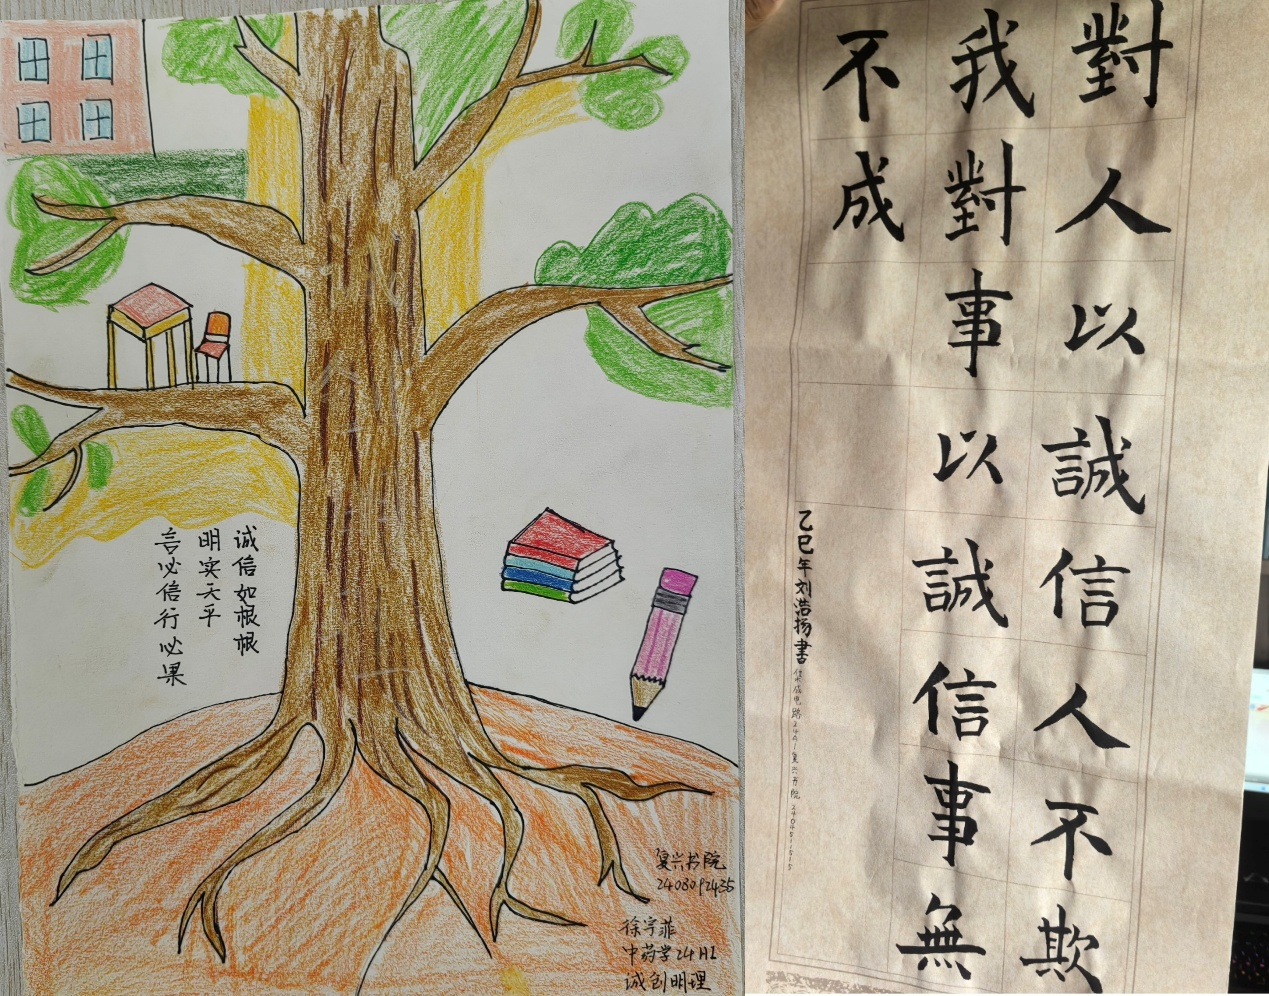 诚信如根根
明实天平
言必信行必果
复兴书院
2408092435
徐宇菲
中药学24H1
诚创明理
對人以誠信人不欺
我對事以誠信事無
不成
乙巳年刘浩扬書
集成电路2401复兴书院